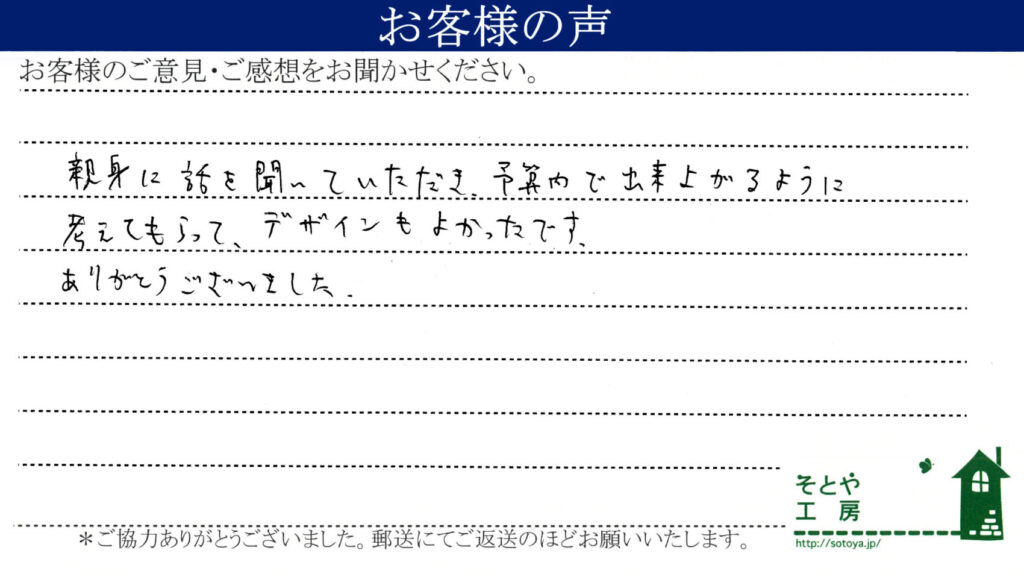 お客様の声
お客様のご意見・ご感想をお聞かせください。
親身に話を聞いていただき、予算内で出来上がるように
考えてもらって、デザインもよかったです。
ありがとうございました。
そとや
工房
http://sotoya.jp/
＊ご協力ありがとうございました。郵送にてご返送のほどお願いいたします。